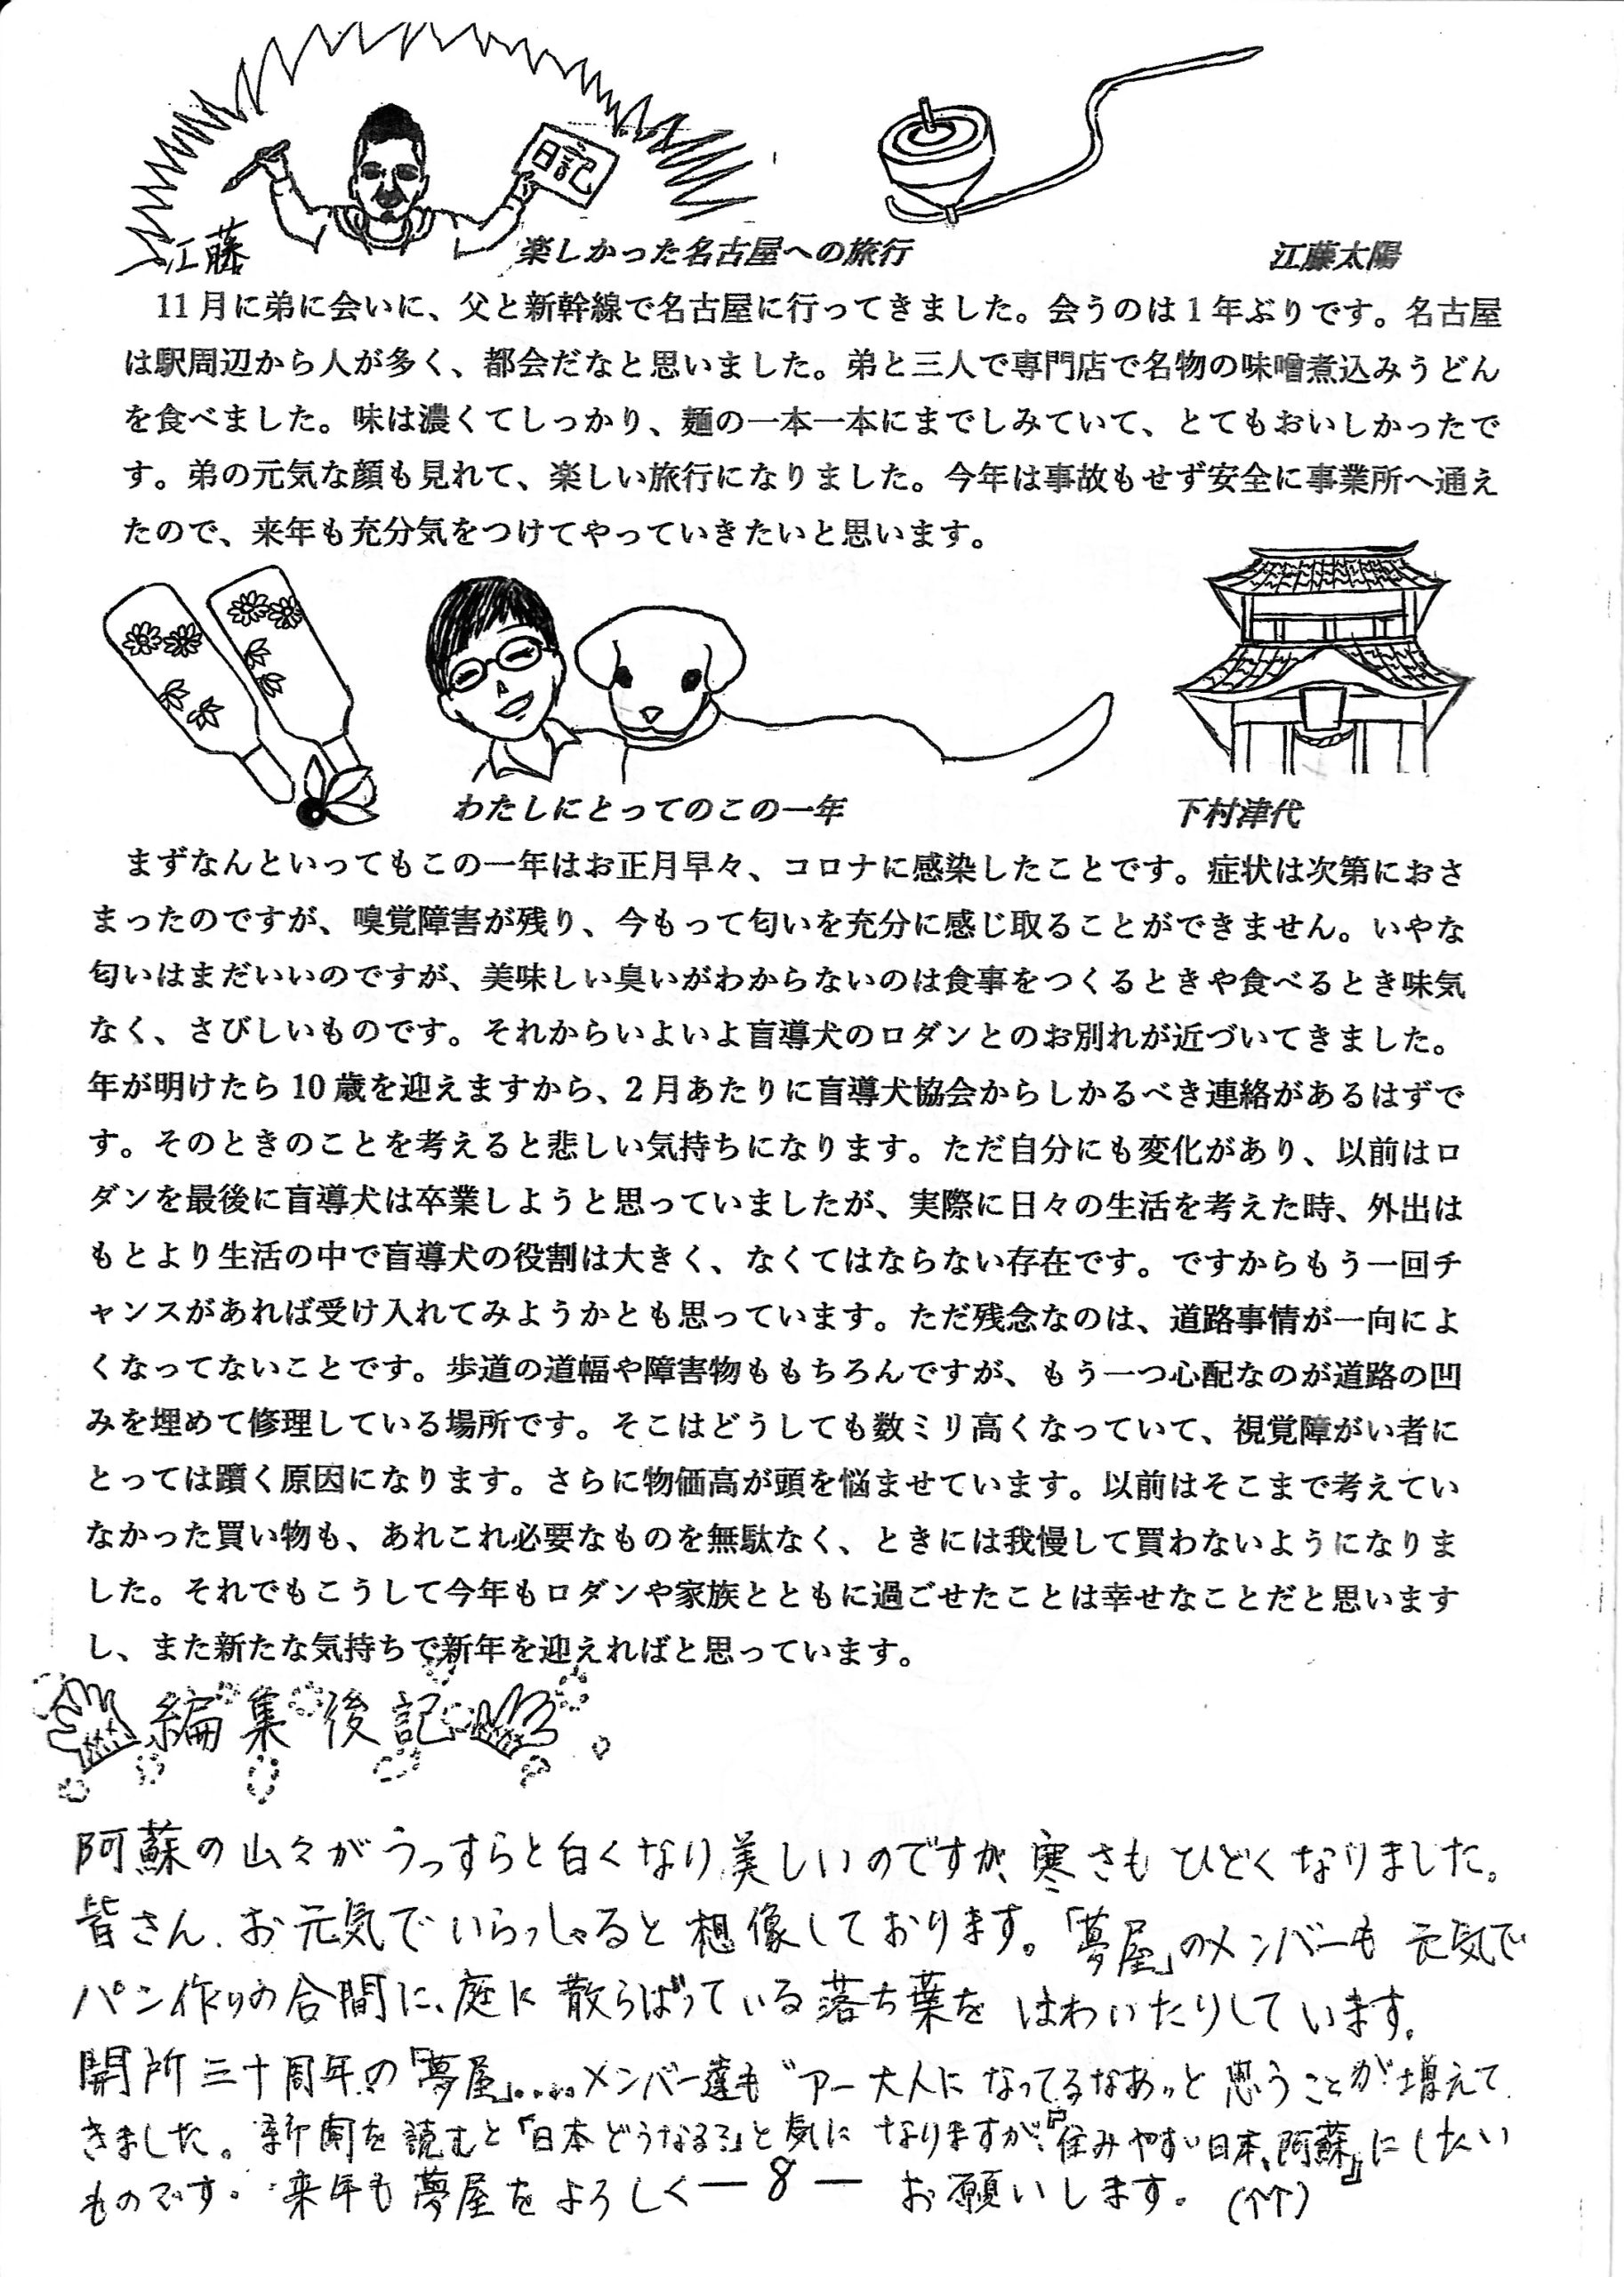 日記
江藤
楽しかった名古屋への旅行　江藤太陽
11月に弟に会いに、父と新幹線で名古屋に行ってきました。会うのは1年ぶりです。名古屋
は駅周辺から人が多く、都会だなと思いました。弟と三人で専門店で名物の味噌煮込みうどん
を食べました。味は濃くてしっかり、麺の一本一本にまでしみていて、とてもおいしかったで
す。弟の元気な顔も見れて、楽しい旅行になりました。今年は事故もせず安全に事業所へ通え
たので、来年も充分気をつけてやっていきたいと思います。
わたしにとってのこの一年　下村津代
まずなんといってもこの一年はお正月早々、コロナに感染したことです。症状は次第におさ
まったのですが、嗅覚障害が残り、今もって匂いを充分に感じ取ることができません。いやな
匂いはまだいいのですが、美味しい臭いがわからないのは食事をつくるときや食べるとき味気
なく、さびしいものです。それからいよいよ盲導犬のロダンとのお別れが近づいてきました。
年が明けたら10歳を迎えますから、2月あたりに盲導犬協会からしかるべき連絡があるはずで
す。そのときのことを考えると悲しい気持ちになります。ただ自分にも変化があり、以前はロ
ダンを最後に盲導犬は卒業しようと思っていましたが、実際に日々の生活を考えた時、外出は
もとより生活の中で盲導犬の役割は大きく、なくてはならない存在です。ですからもう一回チ
ャンスがあれば受け入れてみようかとも思っています。ただ残念なのは、道路事情が一向によ
くなってないことです。歩道の道幅や障害物ももちろんですが、もう一つ心配なのが道路の凹
みを埋めて修理している場所です。そこはどうしても数ミリ高くなっていて、視覚障がい者に
とっては躓く原因になります。さらに物価高が頭を悩ませています。以前はそこまで考えてい
なかった買い物も、あれこれ必要なものを無駄なく、ときには我慢して買わないようになりま
した。それでもこうして今年もロダンや家族とともに過ごせたことは幸せなことだと思います
し、また新たな気持ちで新年を迎えればと思っています。
編集後記
阿蘇の山々がうっすらと白くなり美しいのですが、寒さもひどくなりました。
皆さん、お元気でいらっしゃると想像しております。「夢屋」のメンバーも元気で
パン作りの合間に、庭に散らばっている落ち葉をはわいたりしています。
開所三十周年の「夢屋」‥‥メンバー達も〝アー大人になってるなあ〟と思うことが増えて
きました。新聞を読むと「日本どうなる?」と気になりますが、『住みやすい日本、阿蘇』にしたい
ものです。来年も夢屋をよろしくお願いします。(↑↑)
― 8 ―